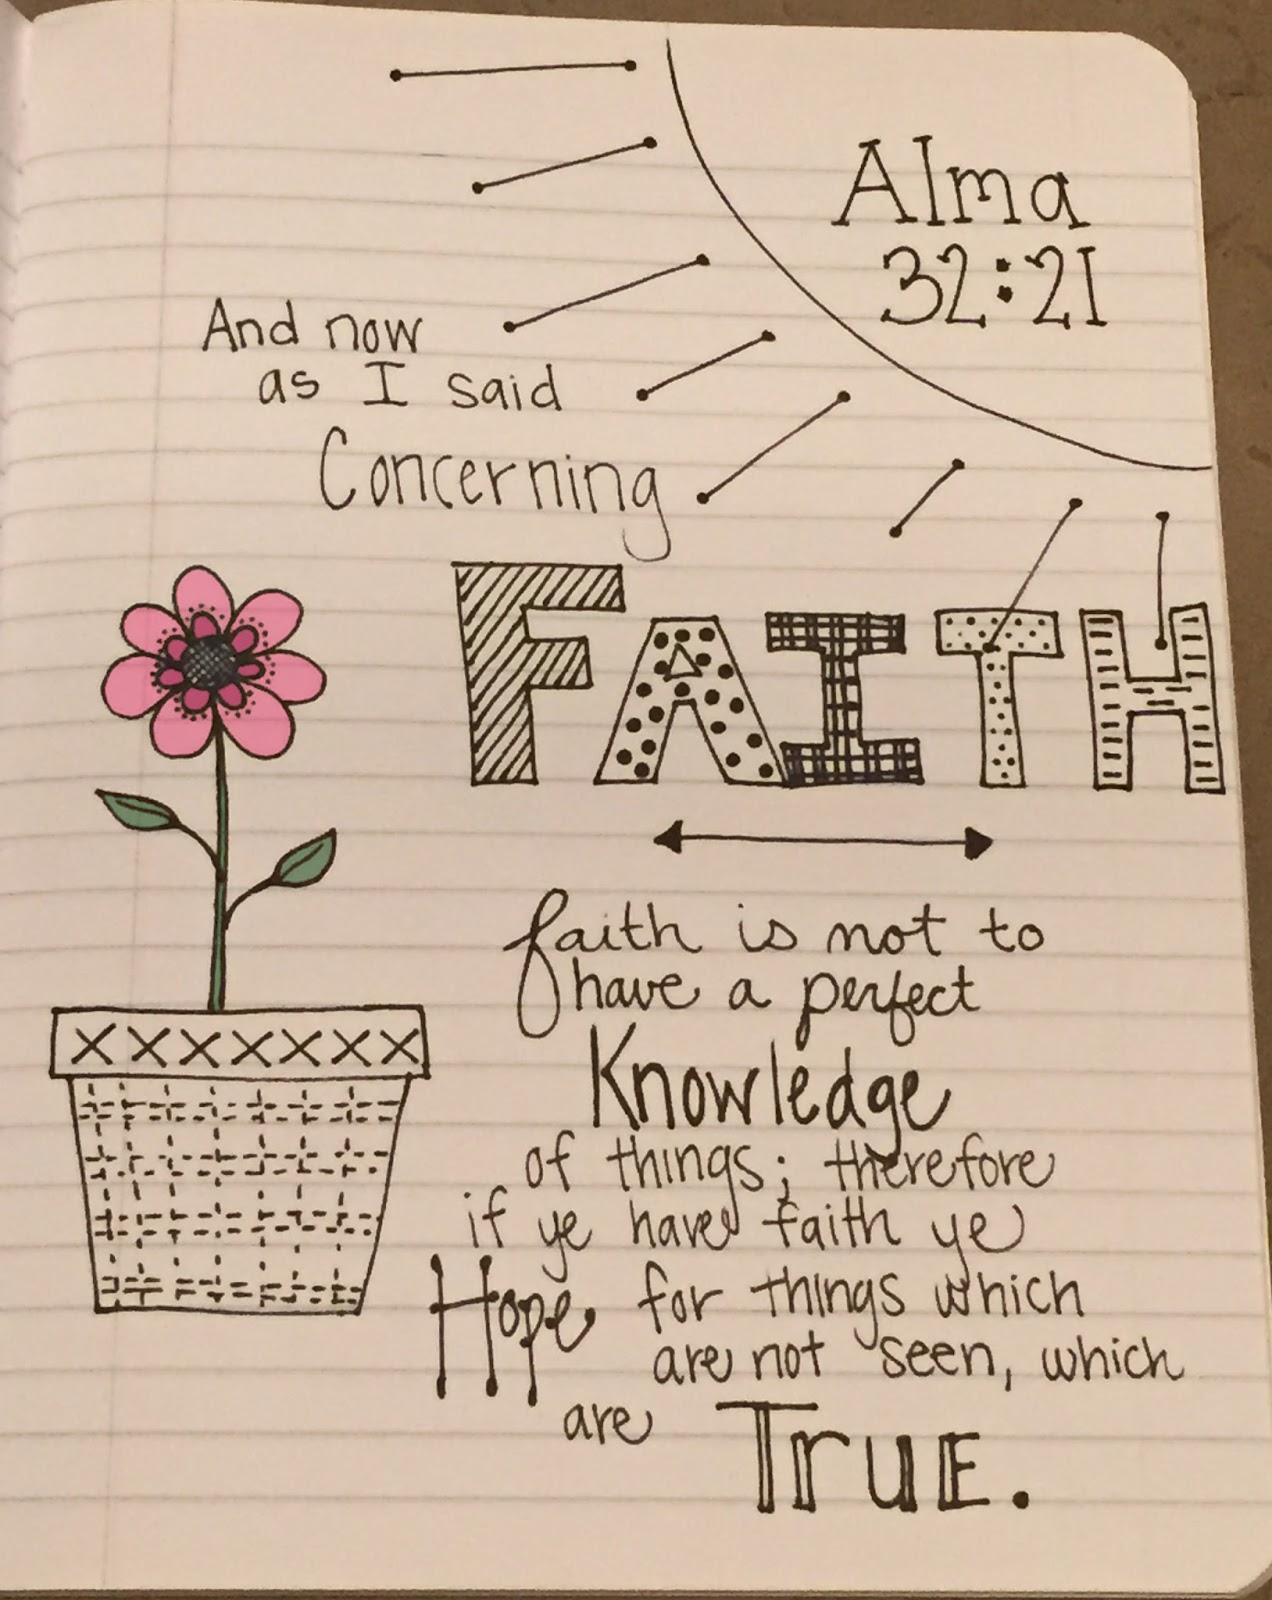 Alma
32:21
And now
as I said
Concerning
FAITH
faith is not to
have a perfect
Knowledge
of things; therefore
if ye have faith ye
Hope for things which
are not seen, which
are True.